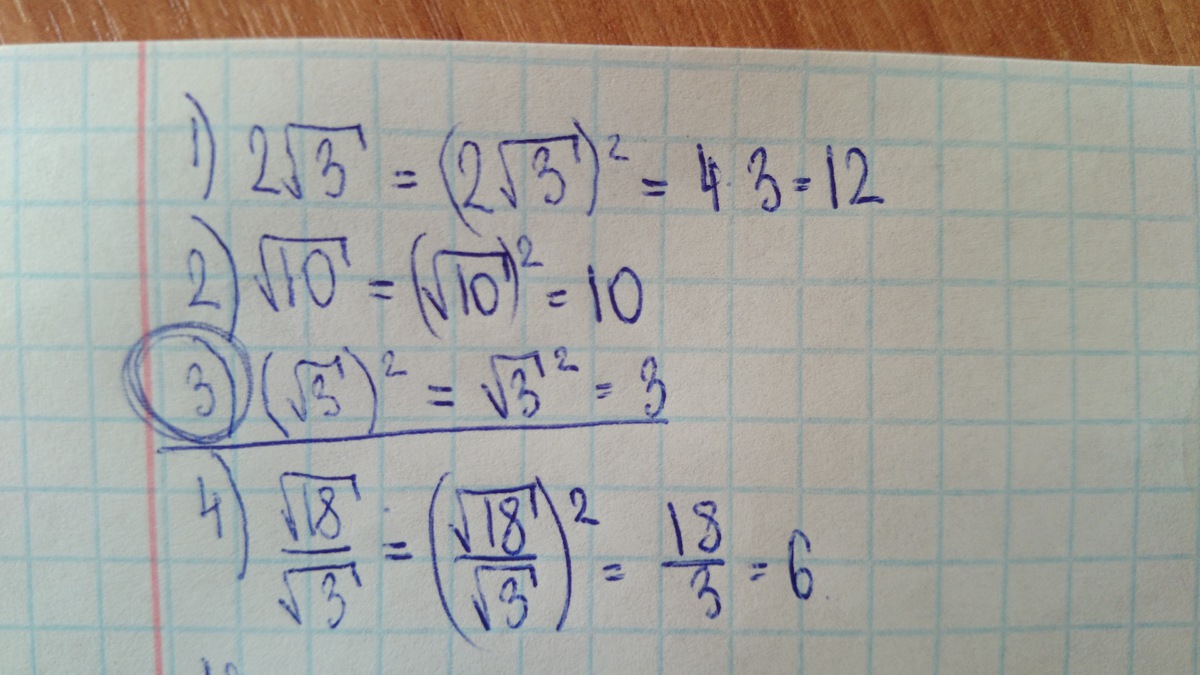 1) 2√3 = (2√3)² = 4·3=12
2) √10 = (√10)² = 10
3) (√3)² = √3² = 3
4) √18/√3 = (√18/√3)² = 18/3 = 6